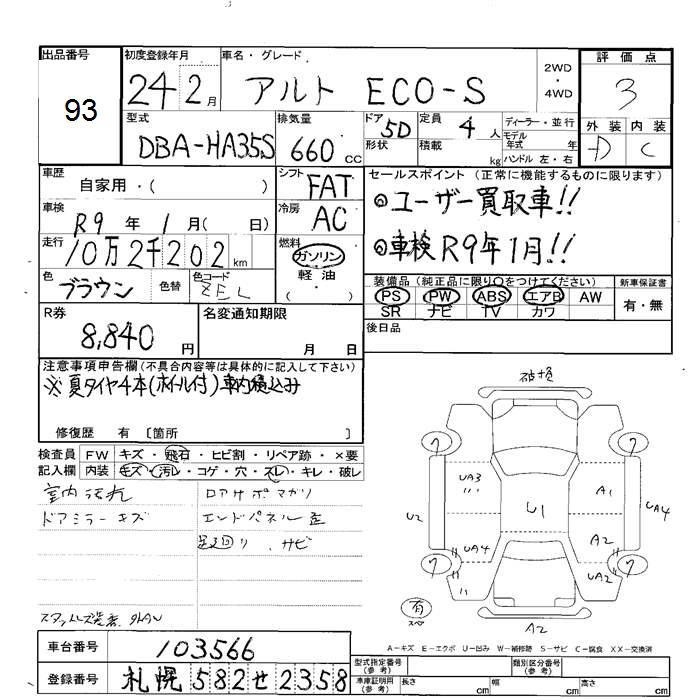 出品番号 初度登録年月 車名・グレード 2WD・4WD 評価点
93 24 2月 アルト ECO-S 3
型式 排気量 ドア 定員 ディーラー・並行 外装 内装
DBA-HA35S 660cc 5D 4人 モデル年式 年 D C
形状 積載 kg ハンドル 左・右
車歴 自家用・( ) シフト FAT セールスポイント (正常に機能するものに限ります)
車検 R9年 1月( 日) 冷房 AC ◎ユーザー買取車!!
走行 10万2千202km 燃料 ガソリン ◎車検R9年1月!!
色 ブラウン 色替 色コード ZEL 軽油 ・( )
装備品 (純正品に限り○をつけてください) 新車保証書
PS PW ABS エアB AW 有・無
SR ナビ TV カワ
R券 8,840円 名変通知期限 月 日 後日品
注意事項申告欄 (不具合内容等は具体的に記入して下さい)
※夏タイヤ4本(ホイル付)車内積込み
修復歴 有 〔箇所 〕
検査員 FW キズ・飛石・ヒビ割・リペア跡・×要
記入欄 内装 キズ・汚レ・コゲ・穴・スレ・キレ・破レ
室内汚れ ロアサポマガリ
ドアミラーキズ エンドパネル歪
足廻り サビ
7 7
UA3 A1
U2 U1 UA4
UA4 A2
7 UA2 7
有 A2
A-キズ E-エクボ U-凹み W-補修跡 S-サビ C-腐食 XX-交換済
車台番号 103566
型式指定番号 (参考) 類別区分番号 (参考)
登録番号 札幌 582 せ 2358
車庫証明用 (参考) 長さ cm 幅 cm 高さ cm